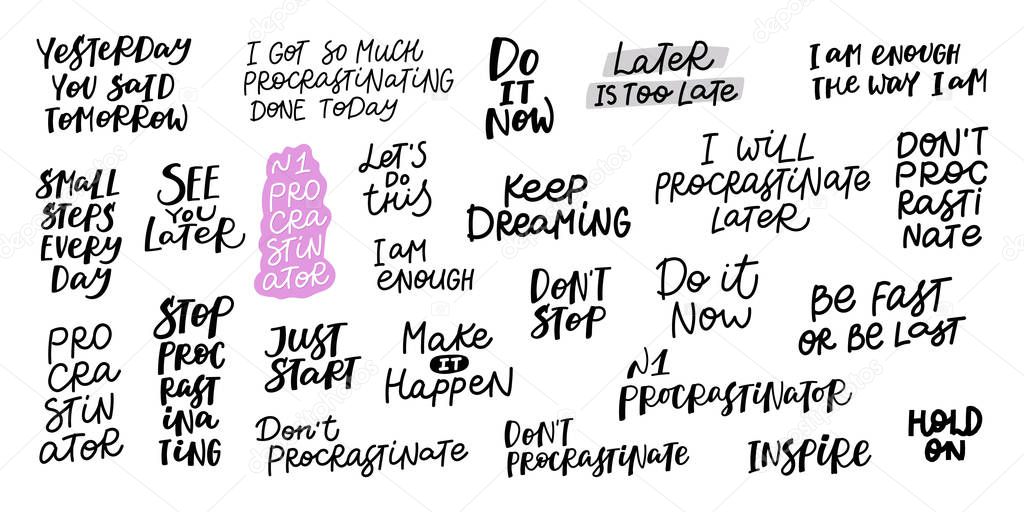 YESTERDAY
YOU SAID
TOMORROW
I GOT SO MUCH
PROCRASTINATING
DONE TODAY
DO
IT
NOW
LATER
IS TOO LATE
I AM ENOUGH
THE WAY I AM
SMALL
STEPS
EVERY
DAY
SEE
YOU
LATER
N1
PRO
CRA
STIN
ATOR
LET'S
DO
THIS
I AM
ENOUGH
KEEP
DREAMING
I WILL
PROCRASTINATE
LATER
DON'T
PROC
RASTI
NATE
PRO
CRA
STIN
ATOR
STOP
PROC
RAST
INA
TING
JUST
START
Make
IT
Happen
DON'T
STOP
Do it
Now
BE FAST
OR BE LAST
N1
PROCRASTINATOR
Don't
Procrastinate
DON'T
PROCRASTINATE
INSPIRE
HOLD
ON